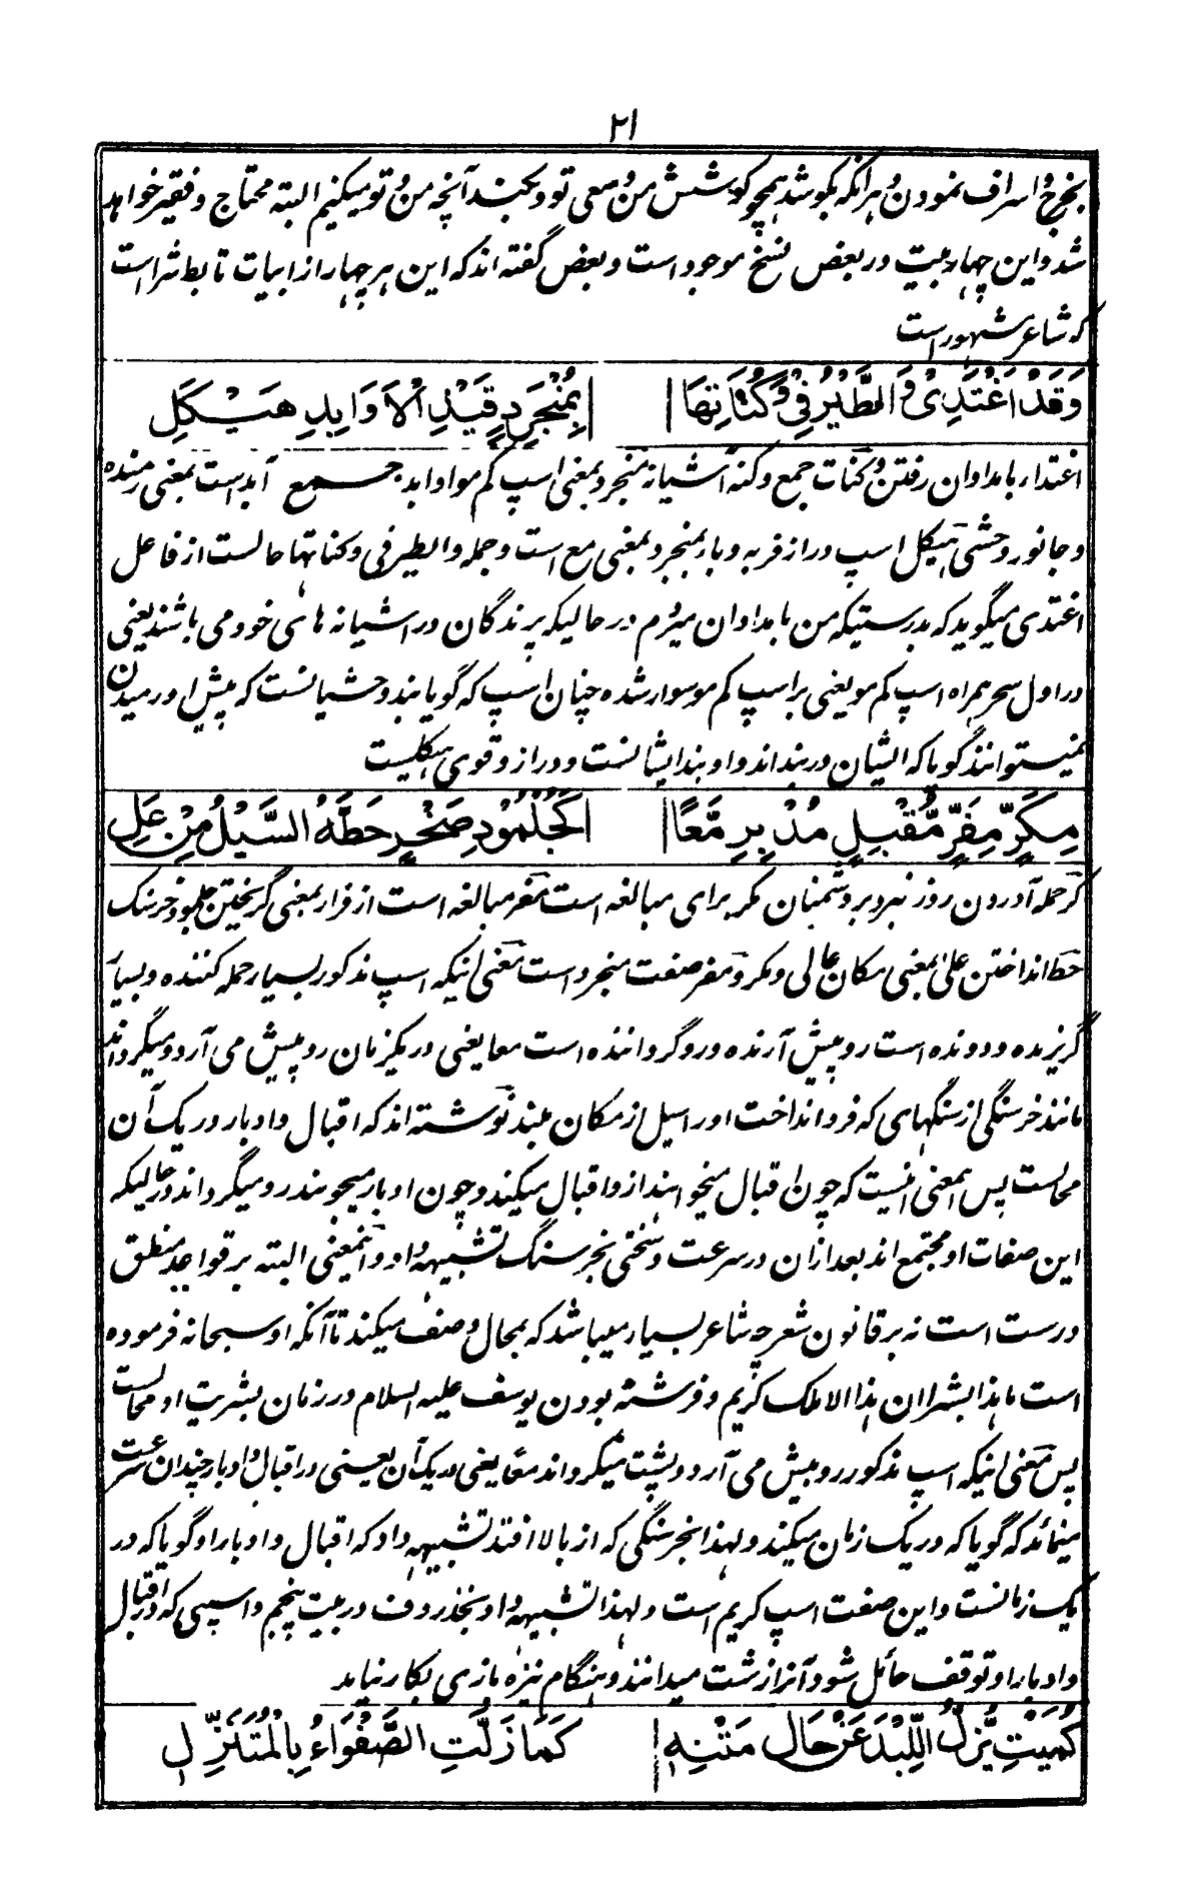 ٢١
بخرج و اسراف نمودن و هرانکه بکوشد همچو کوشش من و سعی تو و بکند آنچه من و تو میکنیم البته محتاج و فقیر خواهد
شد و این چهار بیت در بعض نسخ موجود است و بعض گفته اند که این هر چهار از ابیات تابط شرا است
که شاعر مشهور است
وَقَدْ اَغْتَدِیْ وَ الطَّیْرُ فِیْ وُکُنَاتِهَا | بِمُنْجَرِدٍ قَیْدِ الْاَوَابِدِ هَیْکَلِ
اغتدار بامدادان رفتن وکنات جمع وکنه آشیانه منجرد بمعنی اسپ کم مو اوابد جمع آبد است بمعنی رمنده
و جانور وحشی هیکل اسپ دراز فربه و بار بمنجرد بمعنی مع است و جمله والطیر فی وکناتها حالست از فاعل
اغتدی میگوید که بدرستیکه من بامدادان میروم در حالیکه پرندگان در اشیانه های خود می باشند یعنی
در اول سحر همراه اسپ کم مو یعنی بر اسپ کم مو سوار شده چنان اسپ که گویا بند وحشیانست که پیش او رمیدن
نمیتوانند گویا که ایشان در بند اند و او بند ایشانست و دراز و قوی هیکلیست
مِکَرٍّ مِفَرٍّ مُّقْبِلٍ مُدْبِرٍ مَّعًا | کَجُلْمُوْدِ صَخْرٍ حَطَّهُ السَّیْلُ مِنْ عَلِ
کر حمله آوردن روز نبرد بر دشمنان مکر برای مبالغه است مفر مبالغه است از فرار بمعنی گریختن جلمود خرسنگ
حط انداختن علیٰ بمعنی مکان عالی و مکر و مفر صفت منجرد است معنی اینکه اسپ مذکور بسیار حمله کننده و بسیار
گریزنده و دونده است رو پیش آرنده و رو گرداننده است معا یعنی در یکزمان رو پیش می آرد و میگرداند
مانند خرسنگی از سنگهای که فرو انداخت اورا سیل از مکان بلند نوشته اند که اقبال و ادبار در یک آن
محالست پس اسمعنی اینست که چون اقبال میخواهند ازو اقبال میکند و چون ادبار میجویند رو میگرداند در حالیکه
این صفات او مجتمع اند بعد ازان در سرعت و سختی بخرسنگ تشبیه داد و اینمعنی البته بر قواعد منطق
درست است نه بر قانون شعر چه شاعر بسیار میباشد که بمحال وصف میکند تا آنکه او سبحانه فرموده
است ما هذا بشرا ان هذا الا ملک کریم و فرشته بودن یوسف علیه السلام در زمان بشریت او محالست
پس معنی اینکه اسپ مذکور رو پیش می آرد و پشت میگرداند معًا یعنی در یک آن یعنی در اقبال و ادبار چندان سرعت
مینماید که گویا که در یک زمان میکند و لهذا بخرسنگی که از بالا افتد تشبیه داد که اقبال و ادبار او گویا که در
یک زمانست و این صفت اسپ کریم است و لهذا تشبیه داد بخذروف در بیت پنجم و اسپی که در اقبال
و ادبار او توقف حائل شود آنرا زشت میدانند و هنگام نیزه بازی بکار نیاید
کُمَیْتٍ یَّزِلُّ اللِّبْدَ عَنْ حَالِ مَتْنِهٖ | کَمَا زَلَّتِ الصَّفْوَاءُ بِالْمُتَنَزِّلِ